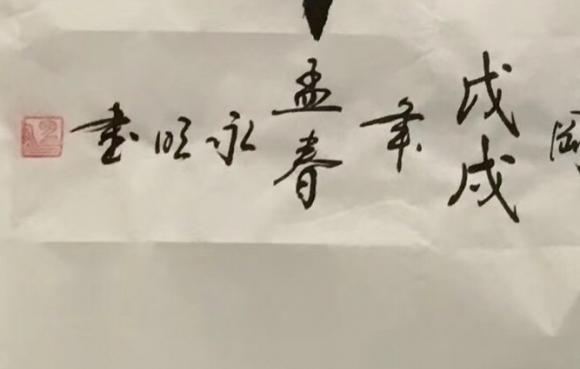 戊戌年孟春永明書